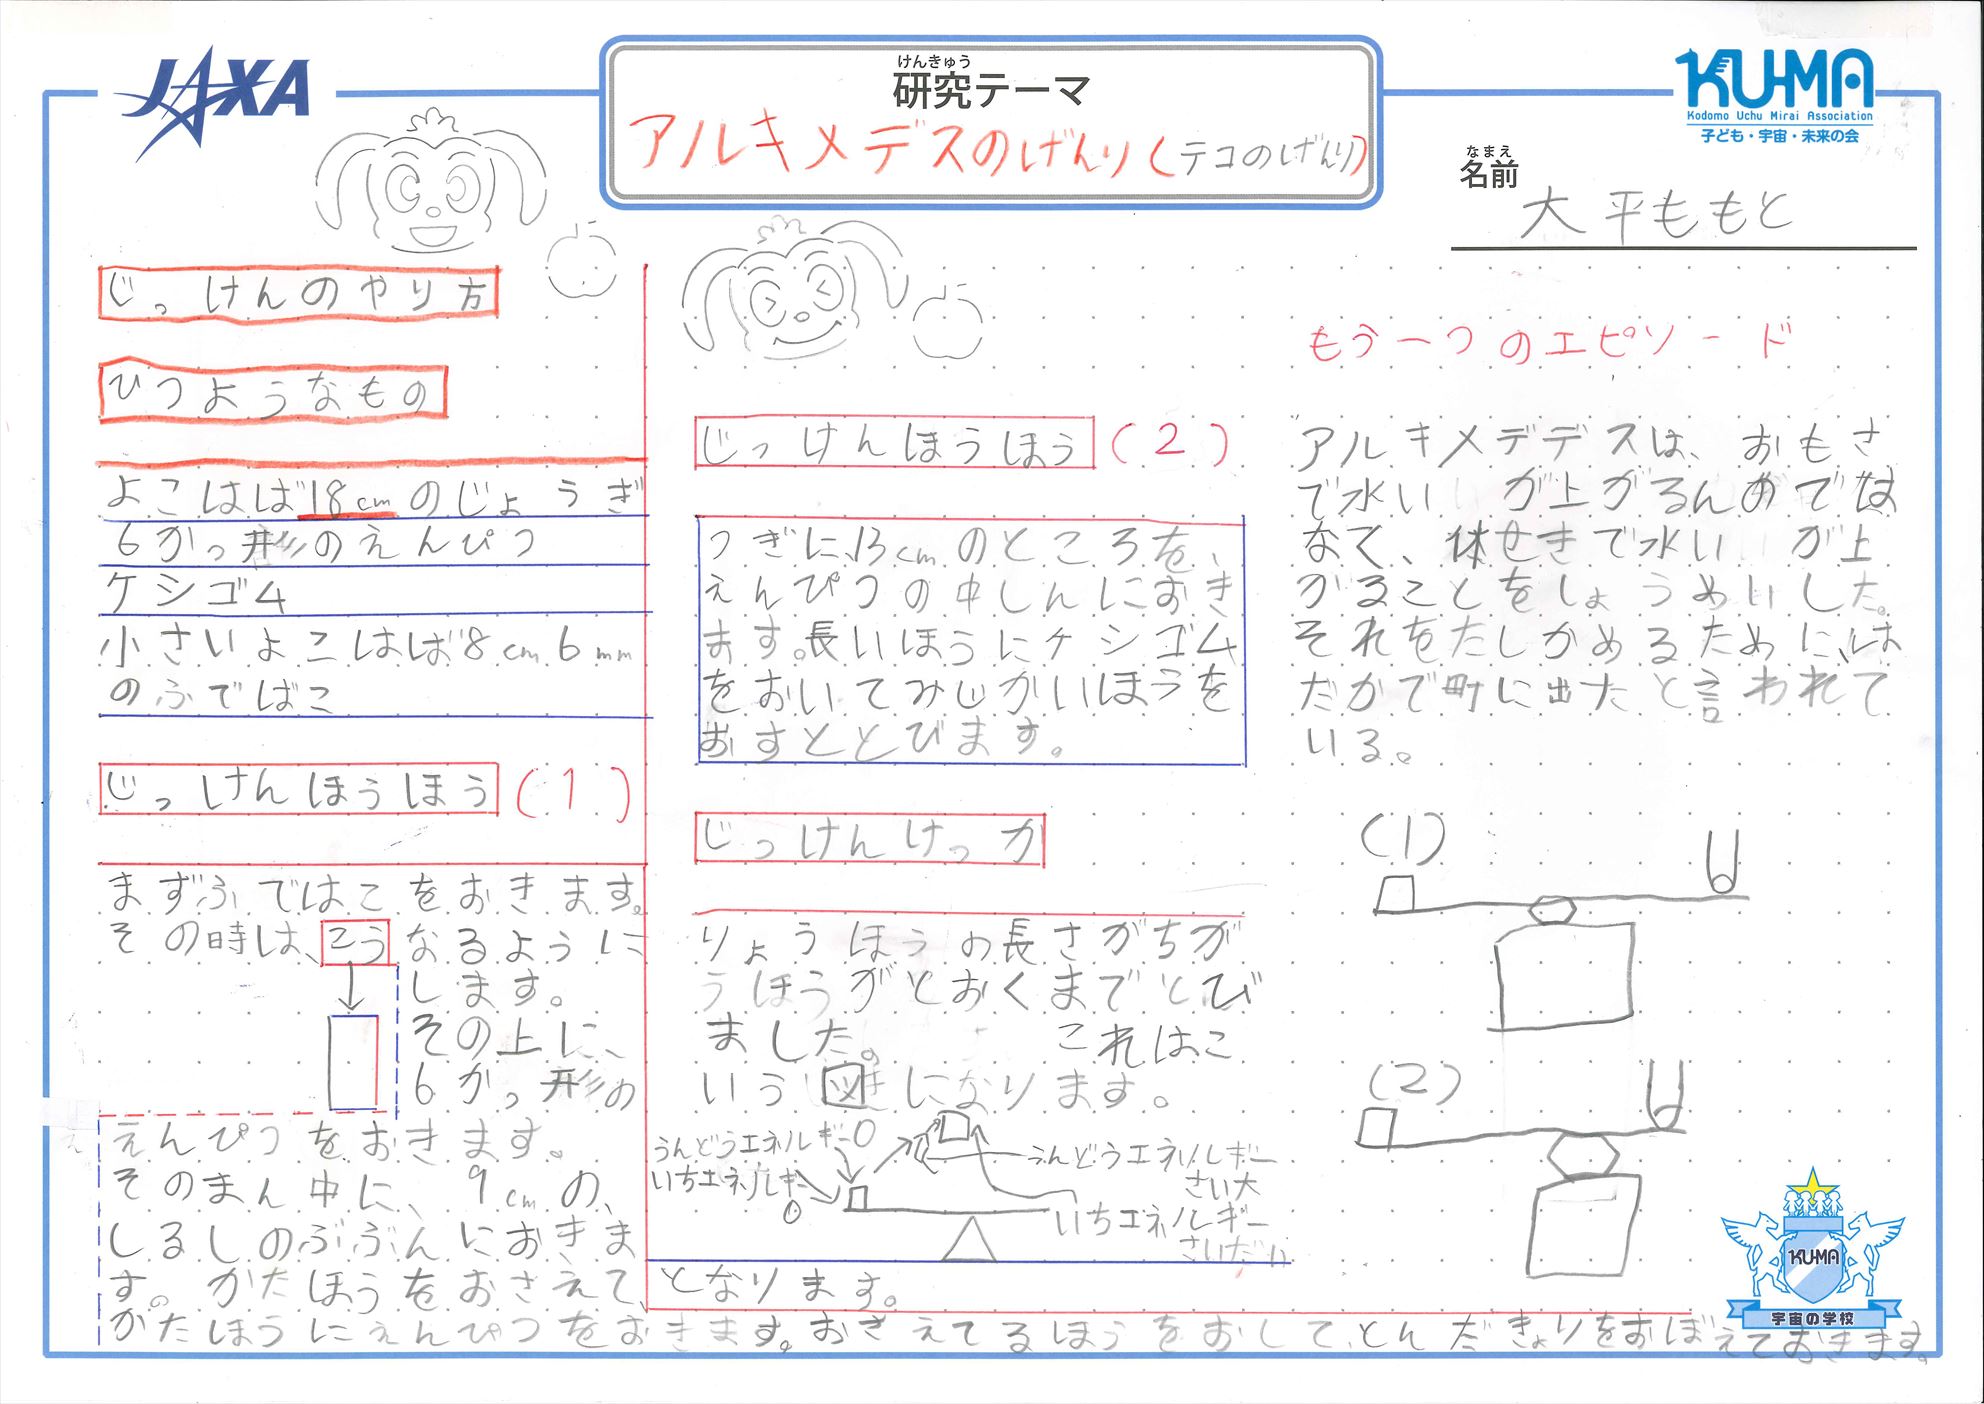 JAXA
けんきゅう
研究テーマ
アルキメデスのげんり(テコのげんり)
KU-MA
Kodomo Uchu Mirai Association
子ども・宇宙・未来の会
なまえ
名前
大平ももと
じっけんのやり方
ひつようなもの
よこはば18cmのじょうぎ
6かっ形のえんぴつ
ケシゴム
小さいよこはば8cm6mm
のふでばこ
じっけんほうほう(1)
まずふではこをおきます。
その時は、こうなるように
します。
その上に、
6かっ形の
えんぴつをおきます。
そのまん中に、9cmの、
しるしのぶぶんにおきま
す。かたほうをおさえて、
かたほうにえんぴつをおきます。おさえてるほうをおして、とんだきょりをおぼえておきます。
じっけんほうほう(2)
つぎに、13cmのところを、
えんぴつの中しんにおき
ます。長いほうにケシゴム
をおいてみじかいほうを
おすととびます。
じっけんけっか
りょうほうの長さがちが
うほうがとおくまでとび
ました。 これはこ
いう図になります。
うんどうエネルギー0
いちエネルギー
0
うんどうエネルギー
さい大
いちエネルギー
さいだい
となります。
もう一つのエピソード
アルキメデデスは、おもさ
で水いが上がるんのでは
なくて、体せきで水いが上
がることをしょうめいした。
それをたしかめるために、は
だかで町に出たと言われて
いる。
(1)
(2)
KU-MA
宇宙の学校